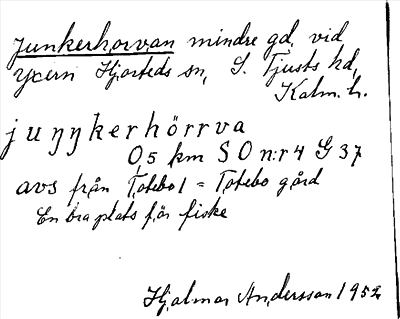 Junkerhorvan mindre gd. vid
Yxern Hjorteds sn, S. Tjusts hd,
Kalm. l.
juŋŋkerhörrva
0,5 km SO n:r 4 G 37
avs från Totebo 1 = Totebo gård
En bra plats för fiske
Hjalmar Andersson 1952